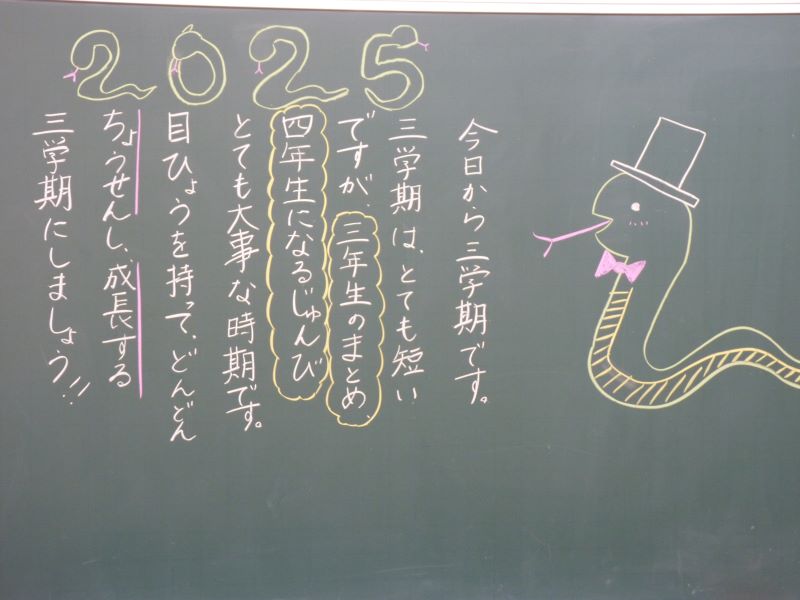 2025
今日から三学期です。
三学期は、とても短い
ですが、三年生のまとめ、
四年生になるじゅんび
とても大事な時期です。
目ひょうを持って、どんどん
ちょうせんし、成長する
三学期にしましょう!!